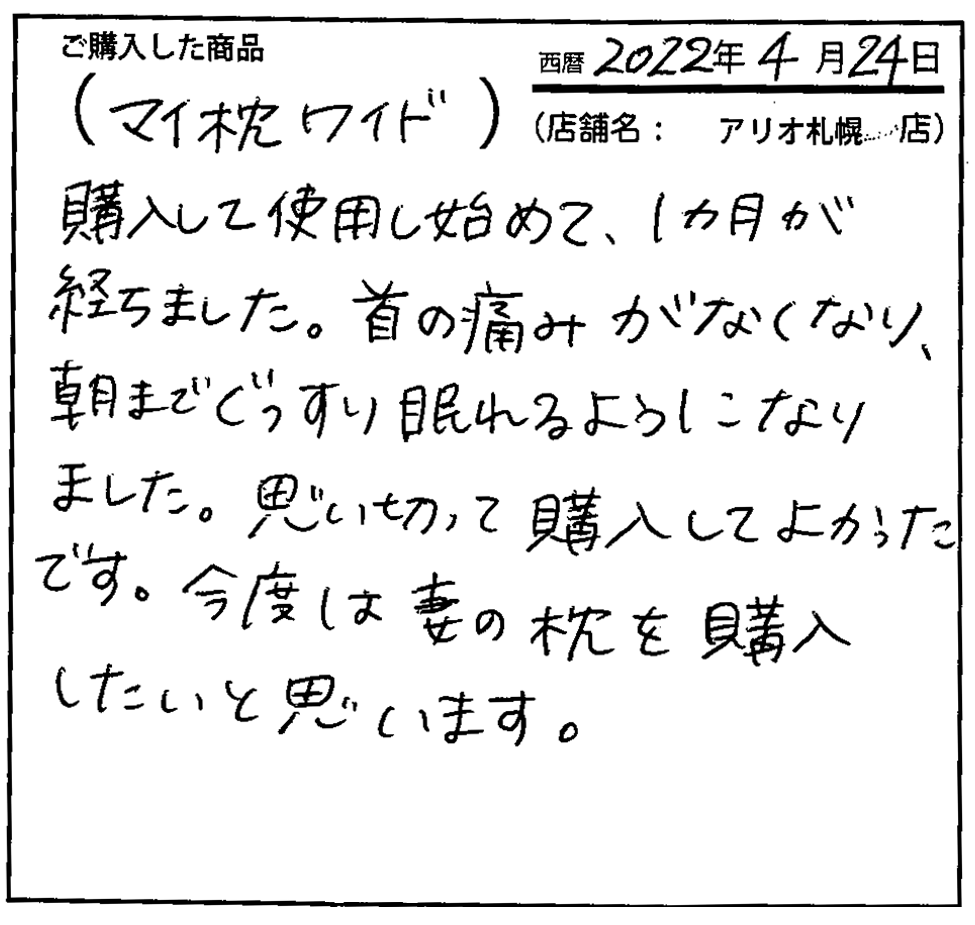 ご購入した商品
西暦 2022年 4 月24日
(マイ枕ワイド)
(店舗名： アリオ札幌 店)
購入して使用し始めて、1カ月が
経ちました。首の痛みがなくなり、
朝までぐっすり眠れるようになり
ました。思い切って購入してよかった
です。今度は妻の枕を購入
したいと思います。